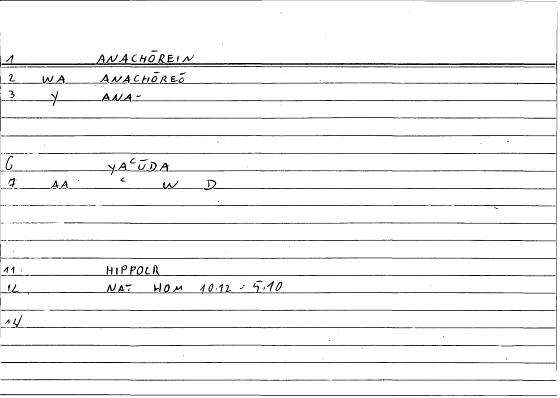 1 ANACHŌREIN
2 WA ANACHŌREŌ
3 Y ANA-
6 YAʿŪDA
7 AA ʿ W D
11 HIPPOCR
12 NAT HOM 10.12 = 5.10
14